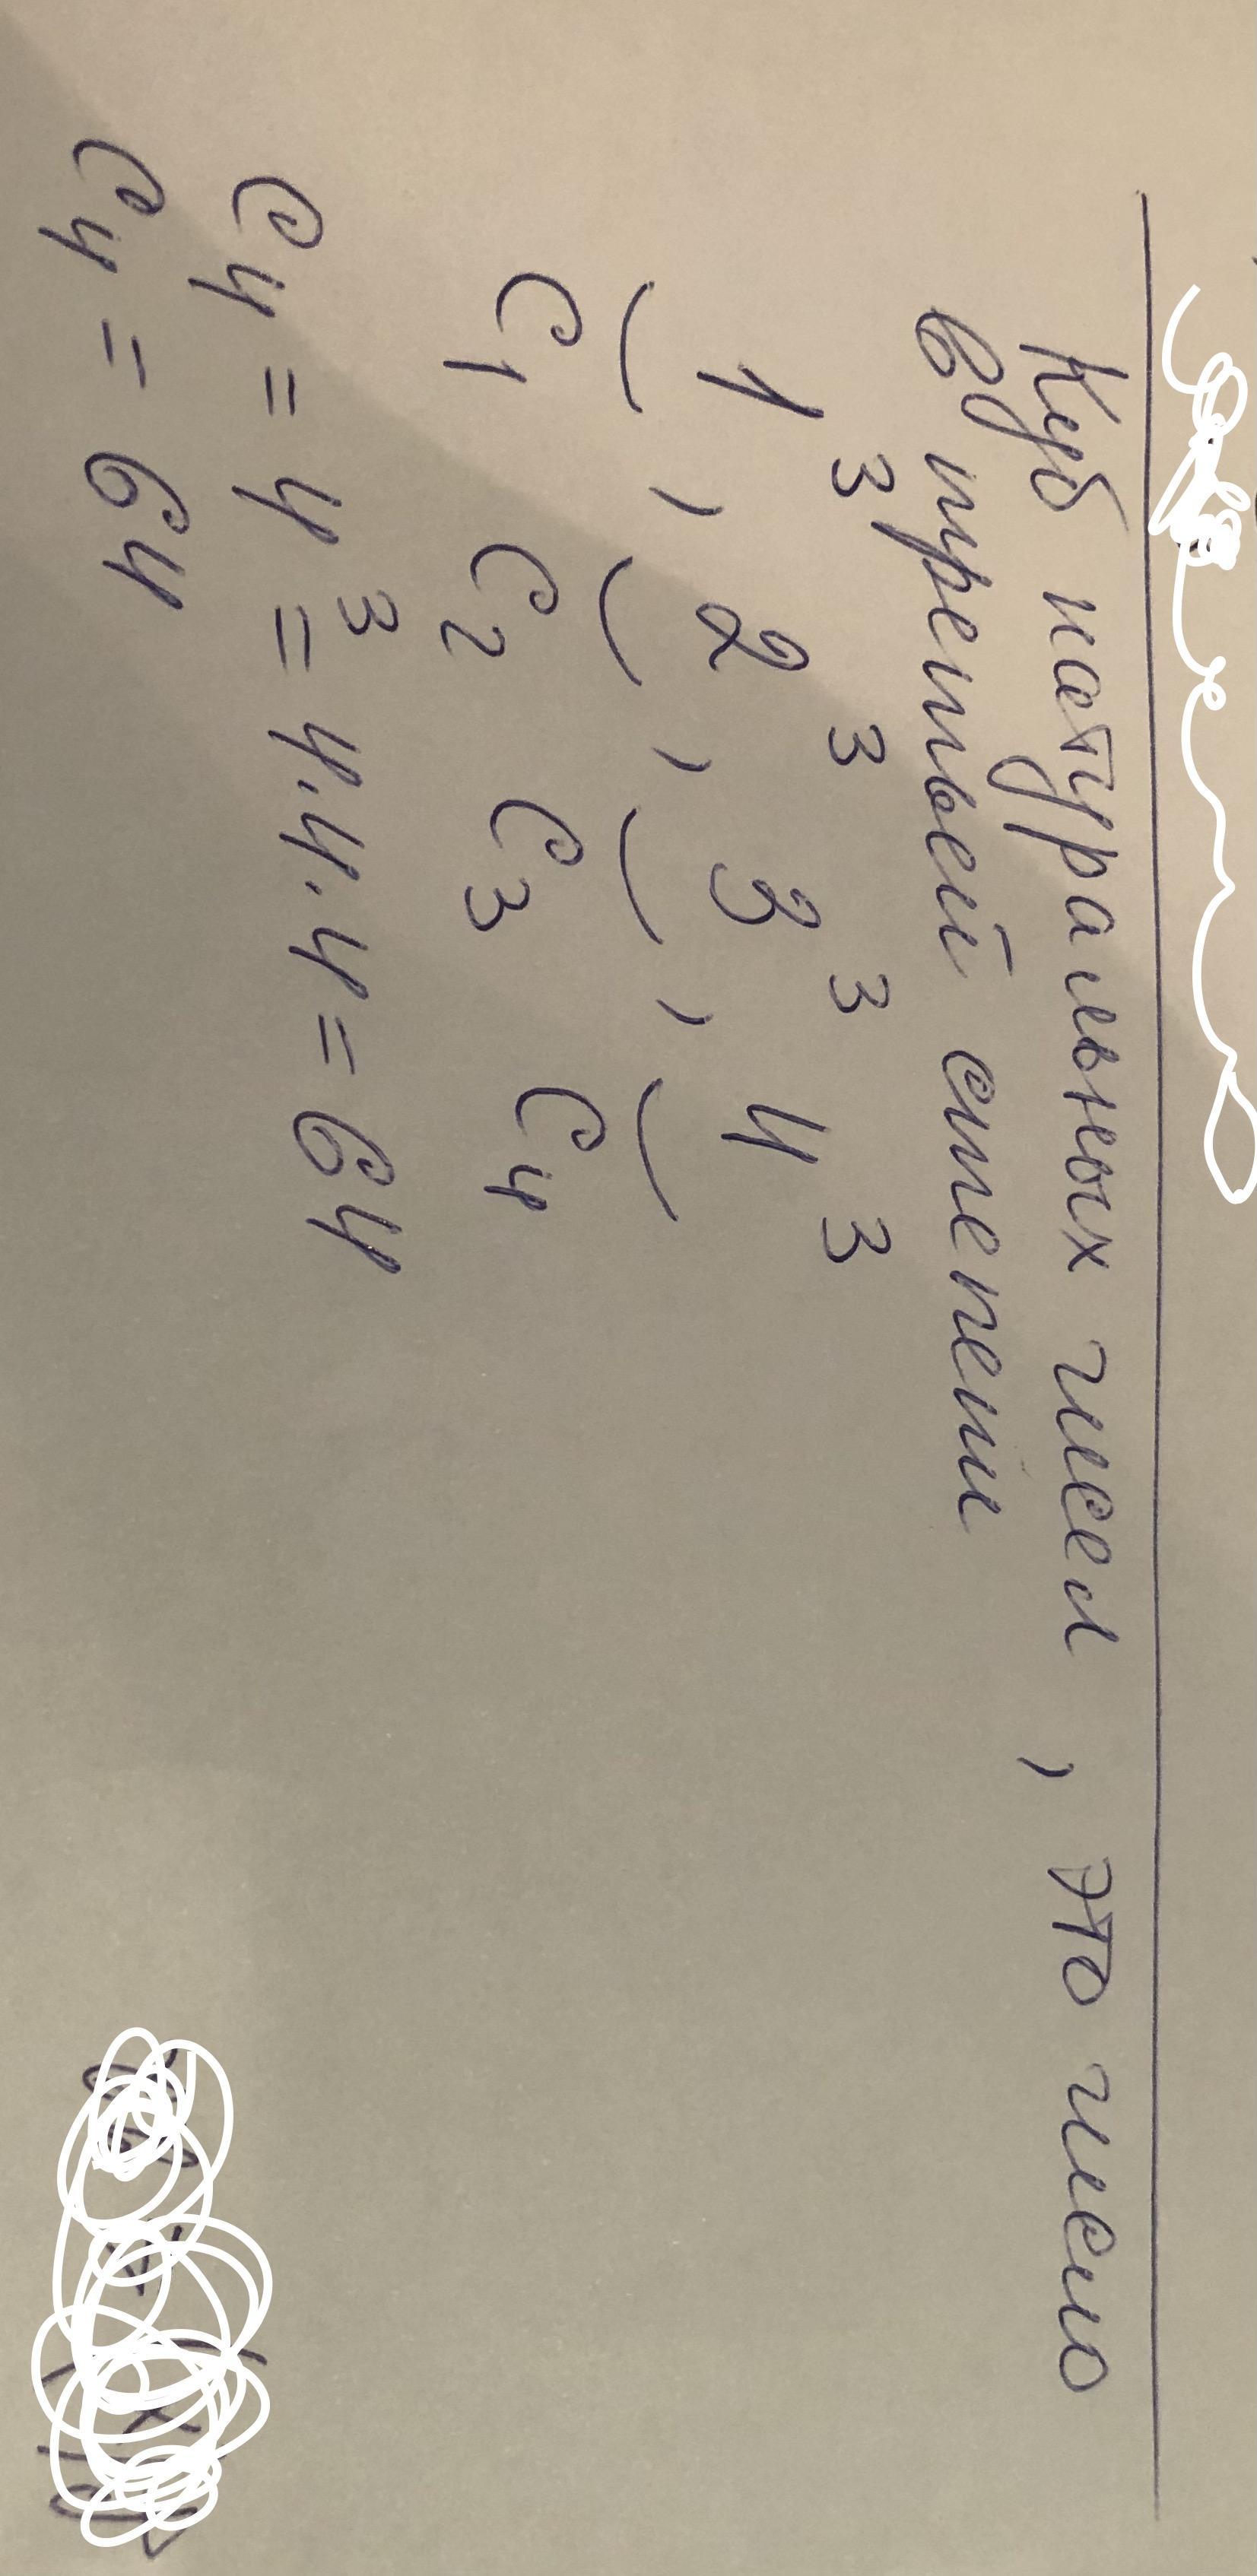 Куб натуральных чисел, это число
в третьей степени
1³, 2³, 3³, 4³
C₁ C₂ C₃ C₄
C₄ = 4³ = 4·4·4 = 64
C₄ = 64